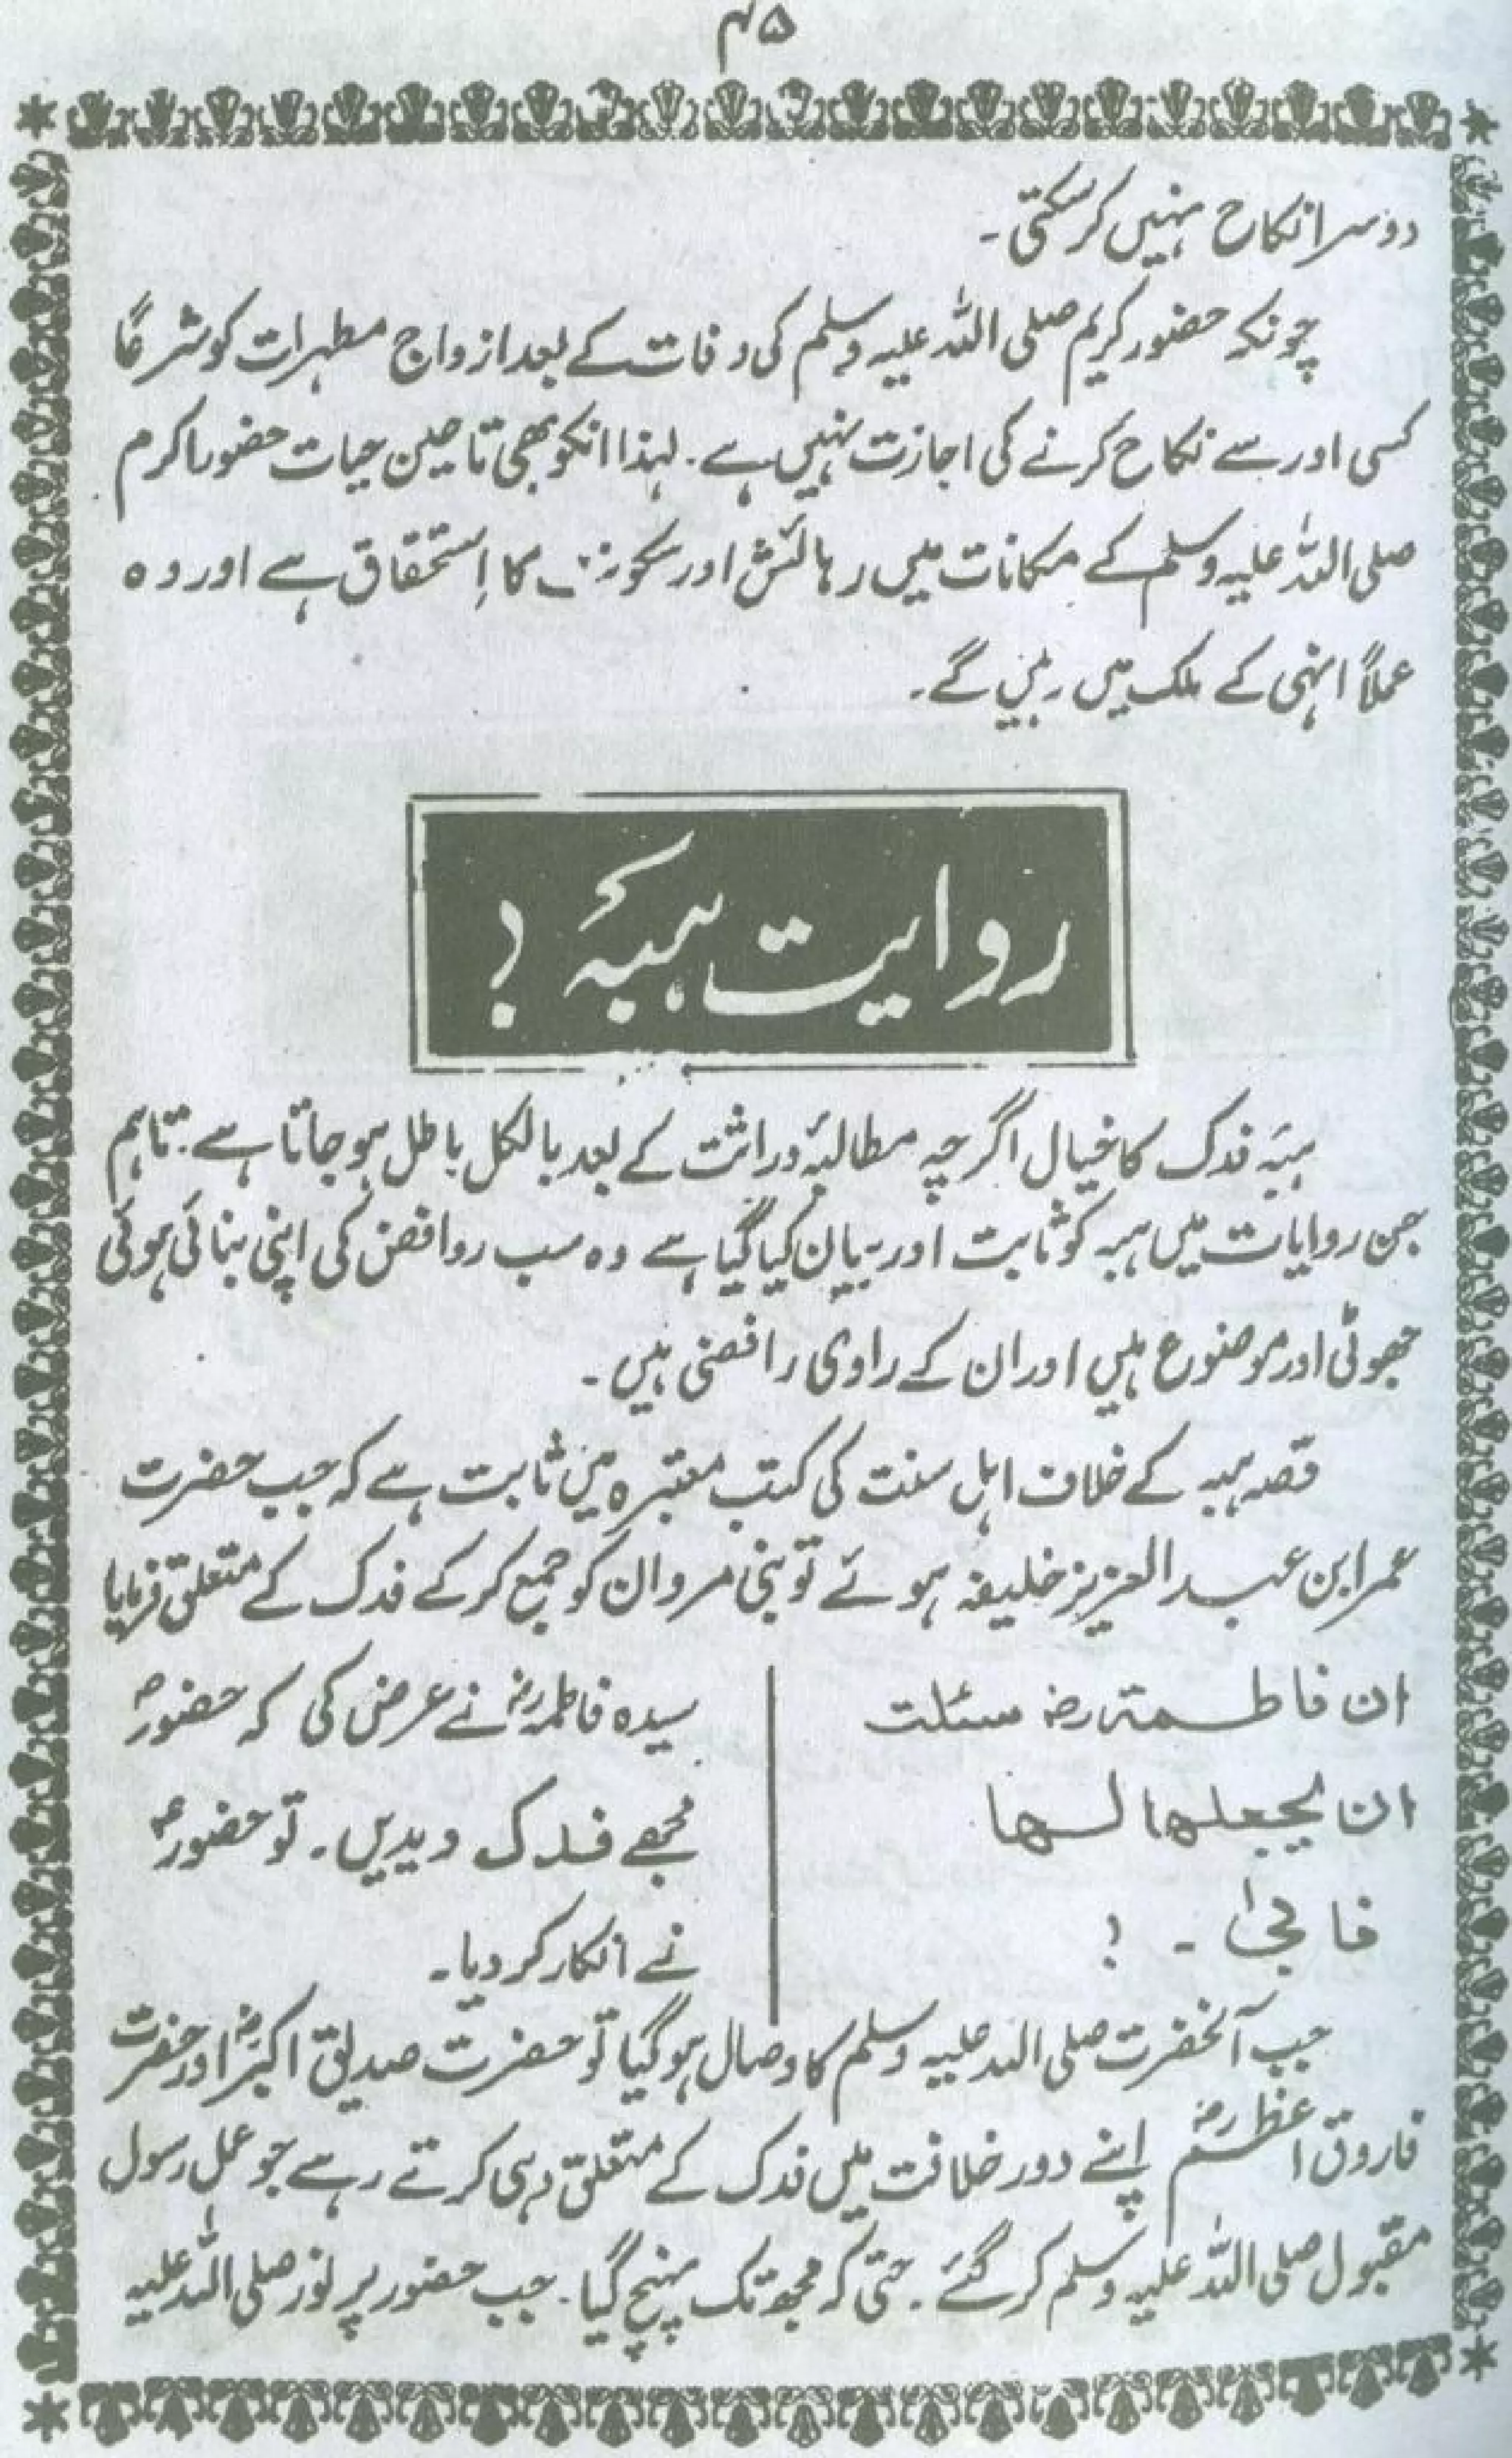 ۴۵
دوسرا نکاح نہیں کرسکتی۔
چونکہ حضور کریم صلی اللہ علیہ وسلم کی وفات کے بعد ازواج مطہرات کو شرعًا
کسی اور سے نکاح کرنے کی اجازت نہیں ہے۔ لہذا انکو بھی تا حین حیات حضور اکرم
صلی اللہ علیہ وسلم کے مکانات میں رہائش اور سکونت کا اِستحقاق ہے اور وہ
عملاً انہی کے ملک میں رہیں گے۔
روایت ہبہٴ ؟
ہبہٴ فدک کا خیال اگرچہ مطالبہٴ وراثت کے بعد بالکل باطل ہو جاتا ہے۔ تاہم
جن روایات میں ہبہ کو ثابت اور بیان کیا گیا ہے وہ سب روافض کی اپنی بنائی ہوئی
جھوٹی اور موضوع ہیں اور ان کے راوی رافضی ہیں۔
قصہ ہبہ کے خلاف اہل سنت کی کتب معتبرہ میں ثابت ہے کہ جب حضرت
عمر ابن عبد العزیز خلیفہ ہوئے تو بنی مروان کو جمع کرکے فدک کے متعلق فرمایا
ان فاطمۃ رضہ سئلت
ان یجعلھا لھا
فابیٰ ۔ ؟
سیدہ فاطمہ رضہ نے عرض کی کہ حضورؐ
مجھے فدک دیدیں۔ تو حضورؐ
نے انکار کر دیا۔
جب آنحضرت صلی اللہ علیہ وسلم کا وصال ہو گیا تو حضرت صدیق اکبرؓ اور حضرت
فاروق اعظم رضہ اپنے دور خلافت میں فدک کے متعلق وہی کرتے رہے جو عمل رسول
مقبول صلی اللہ علیہ وسلم کر گئے۔ حتیٰ کہ مجھ تک پہنچ گیا۔ جب حضور پر نور صلی اللہ علیہ